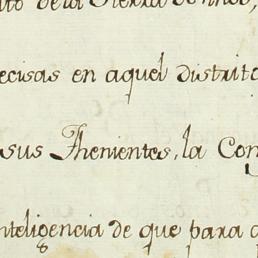 de la Sierra
ecisas en aquel distrito
sus Thenientes, la Con
nteligencia de que para